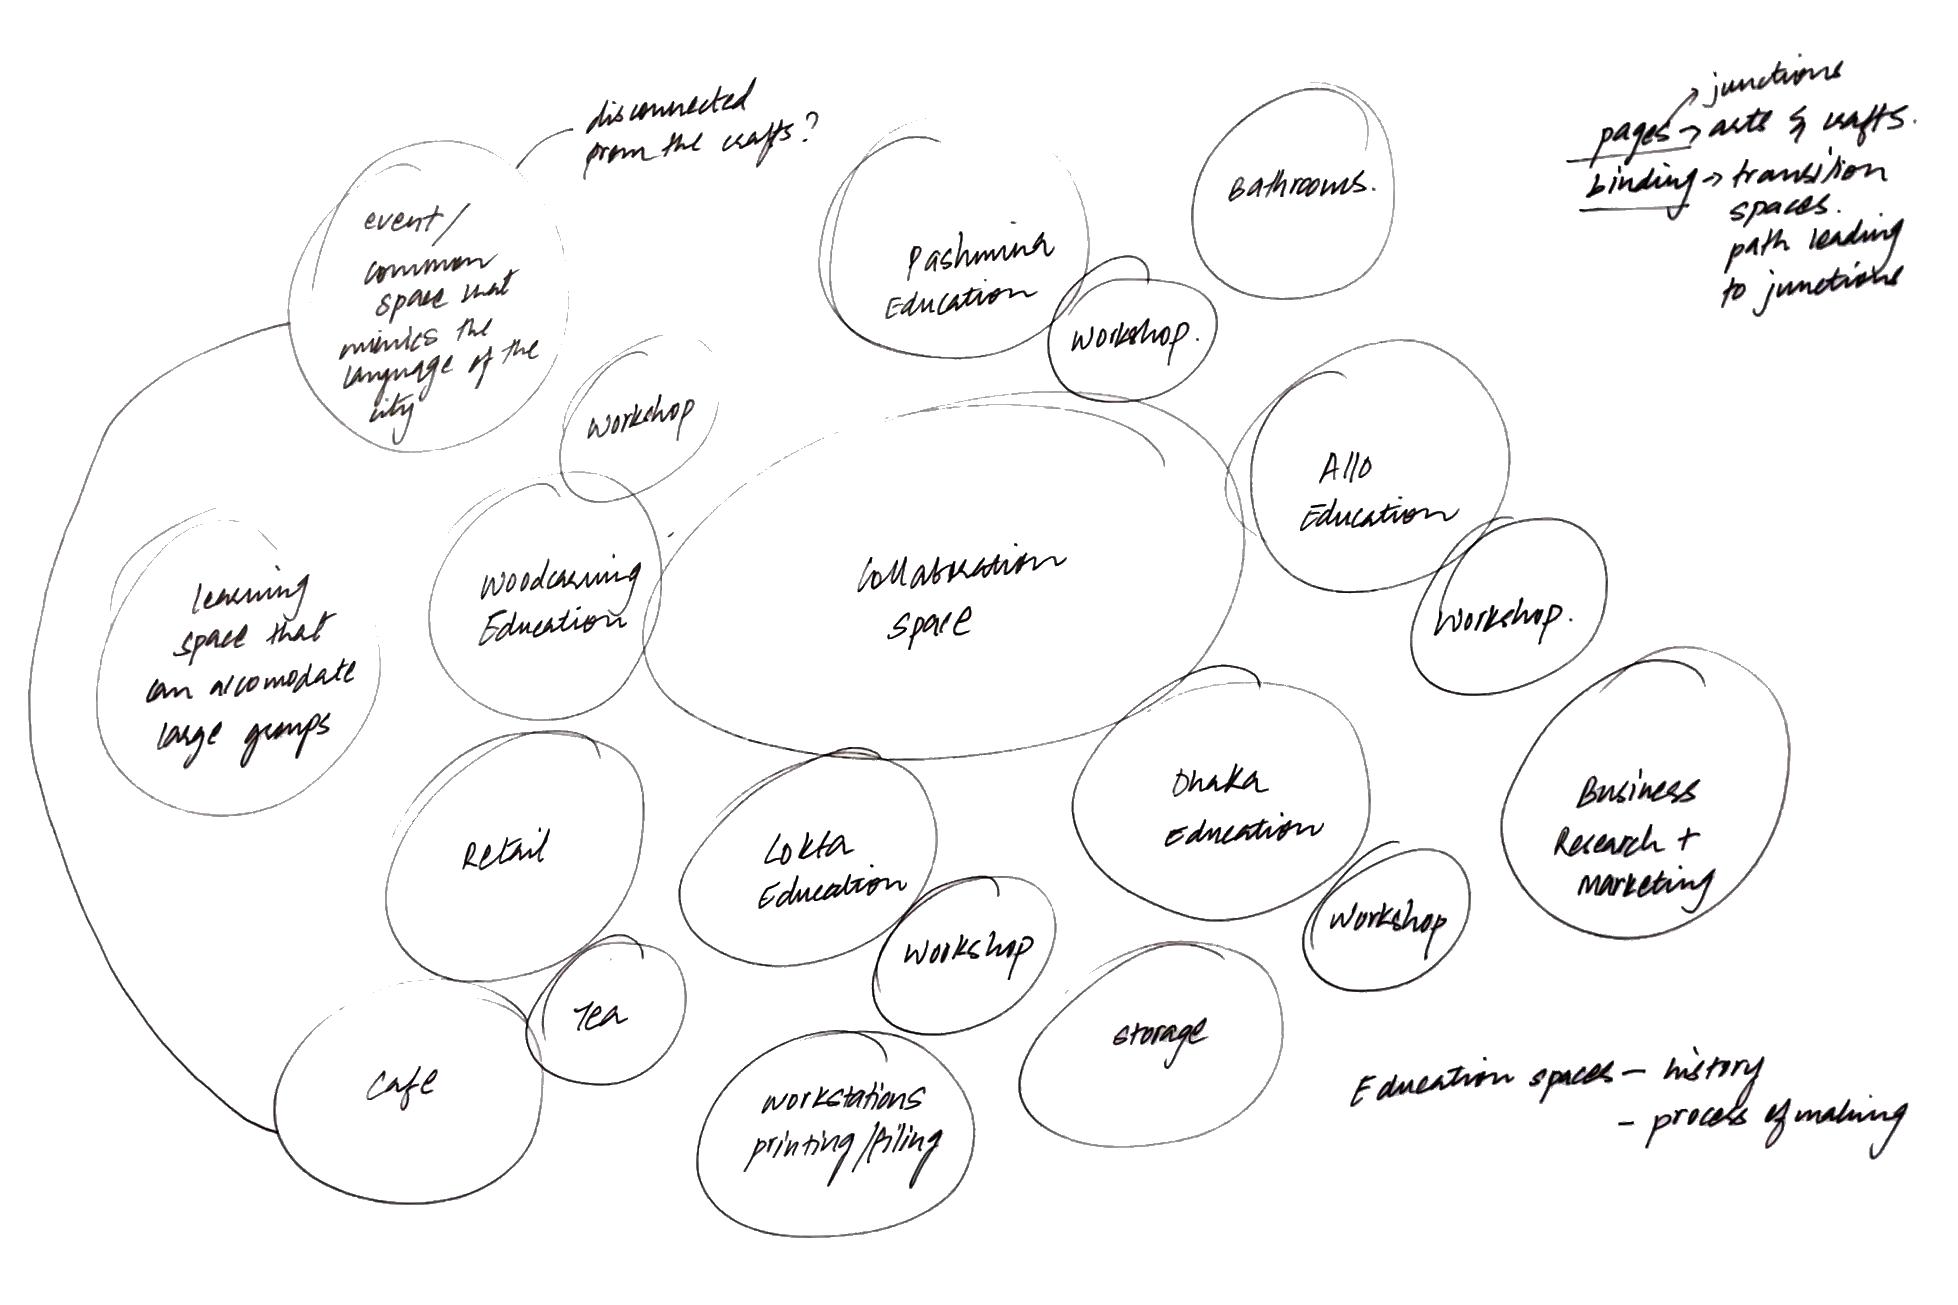 disconnected
from the crafts?
event/
common
space that
mimics the
language of the
city
Workshop
Pashmina
Education
Workshop.
Bathrooms.
junctions
pages → arts & crafts.
binding → transition
spaces.
path leading
to junctions
Allo
Education
Workshop.
Collaboration
space
Woodcarving
Education
learning
space that
can accomodate
large groups
Retail
Lokta
Education
Workshop
Dhaka
Education
Workshop
Business
Research +
Marketing
Tea
Cafe
Workstations
printing/filing
Storage
Education spaces – history
– process of making